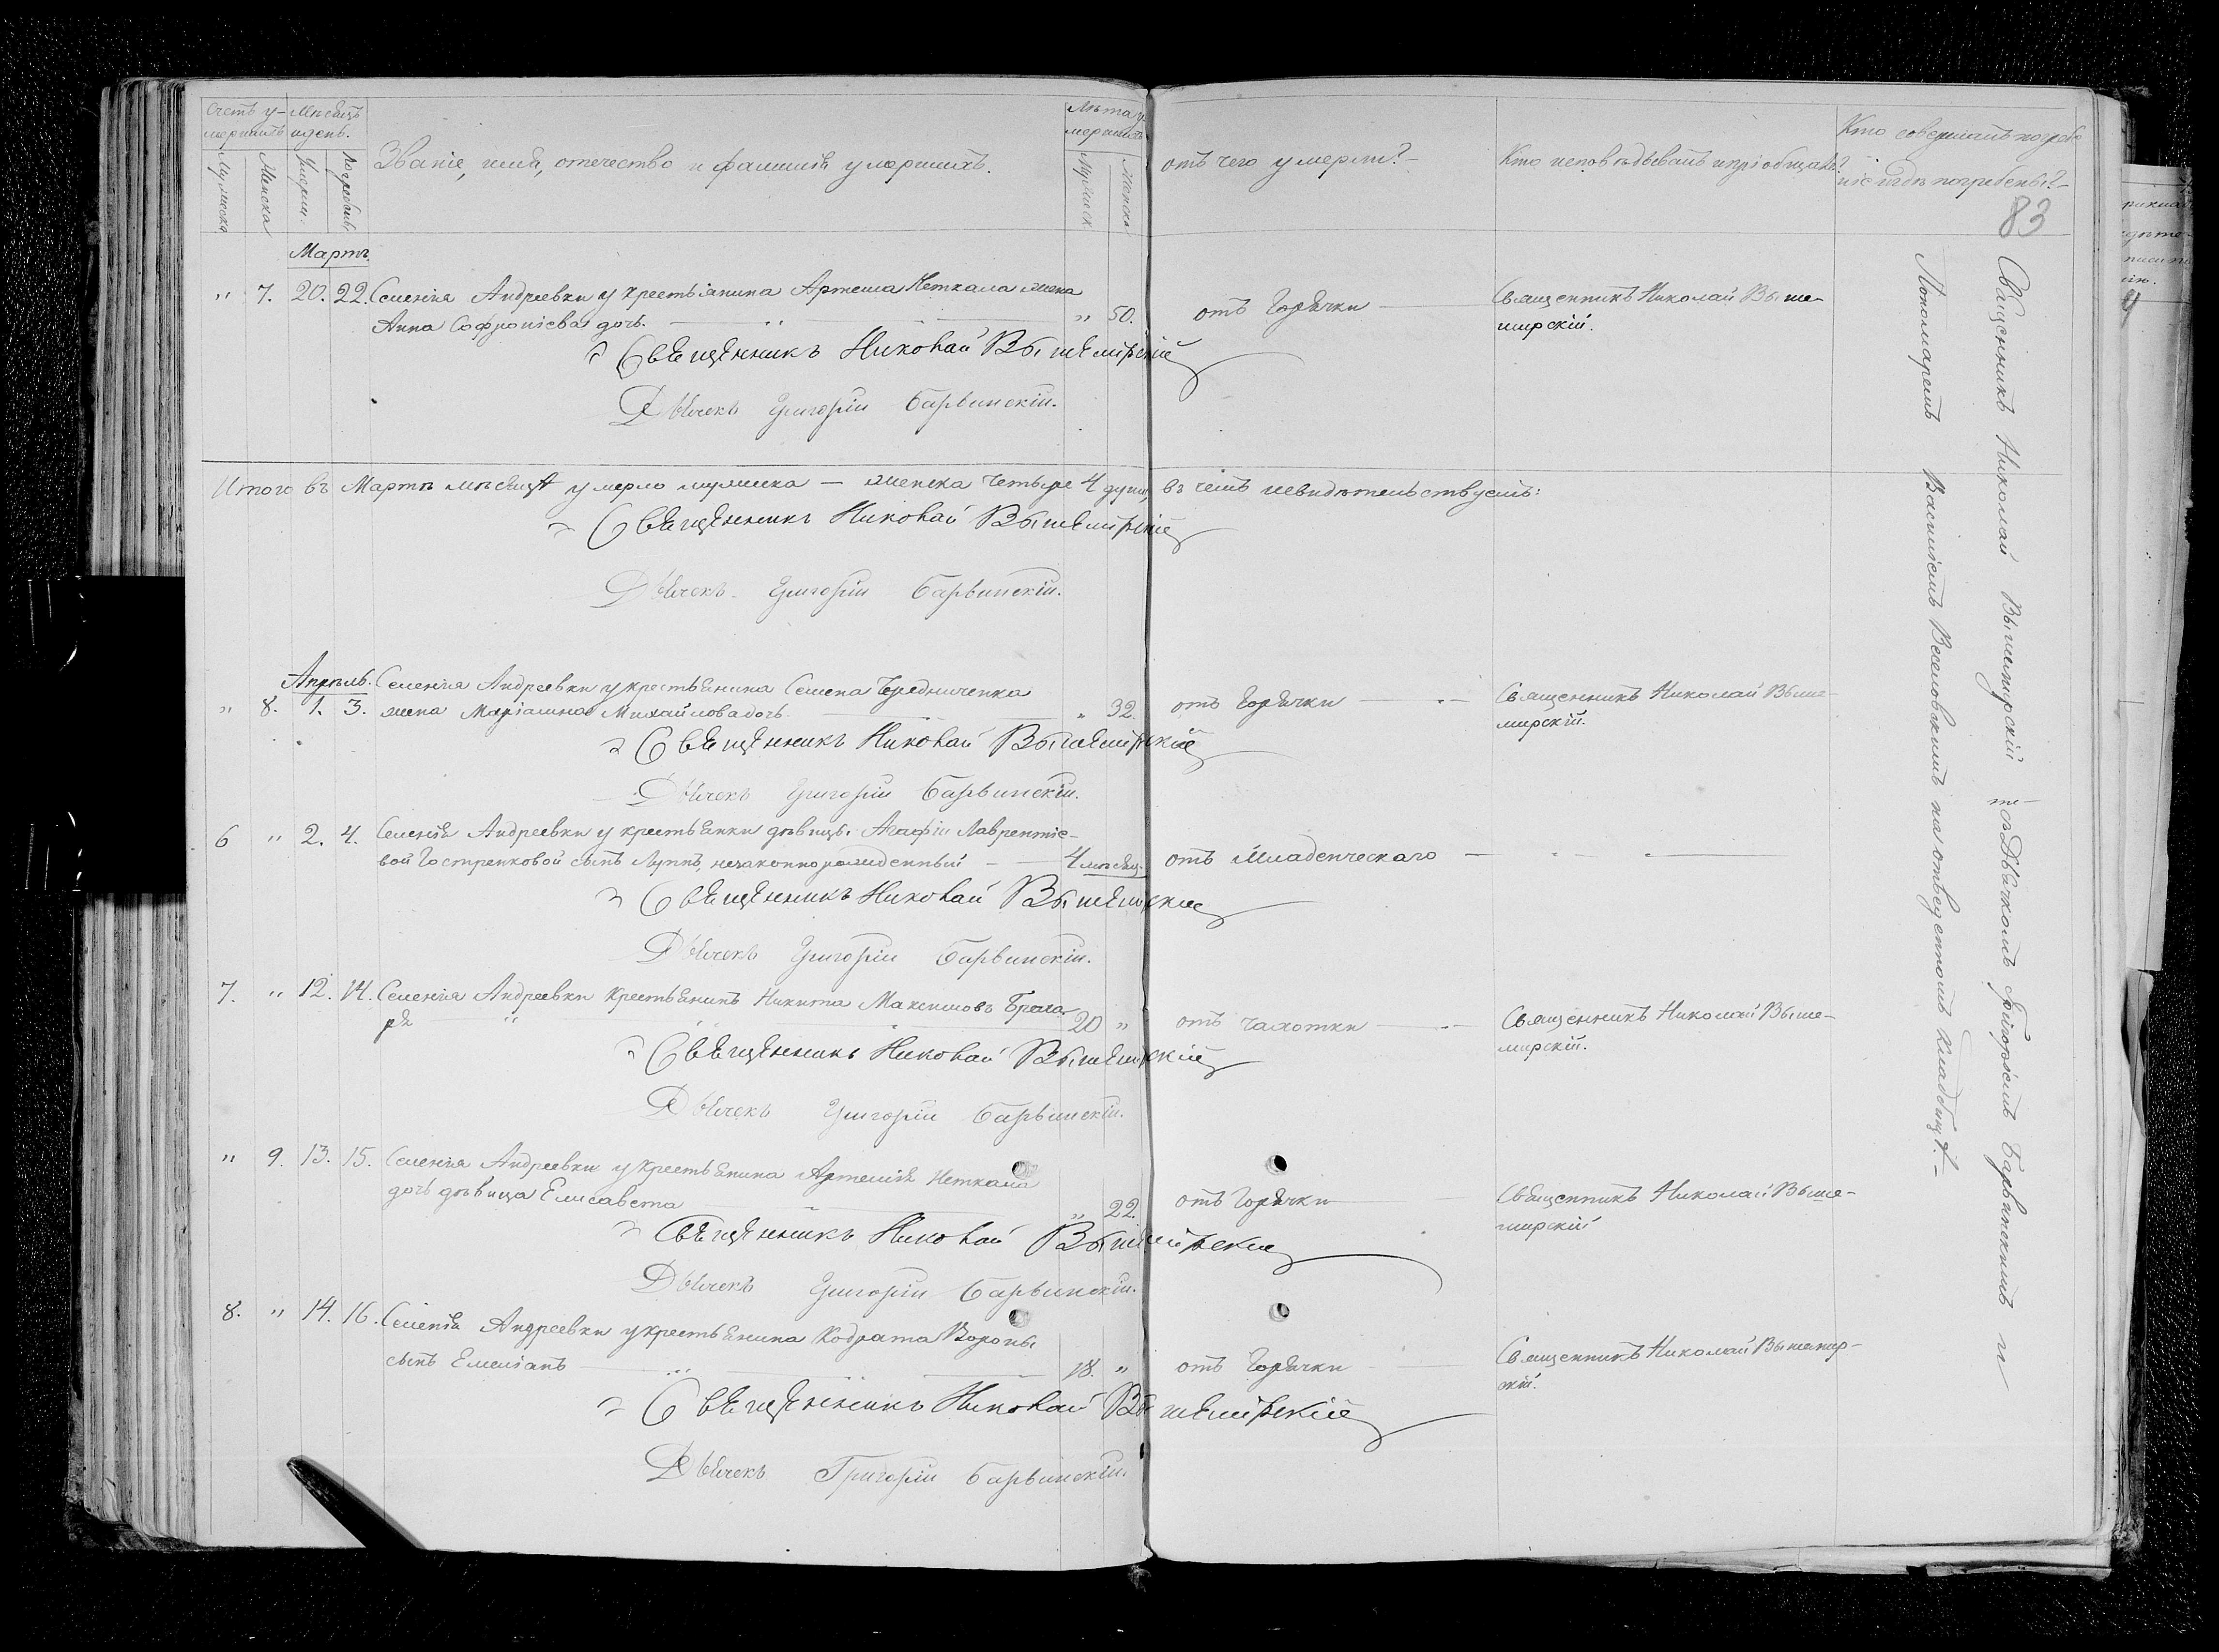 Счетъ у-
мершихъ
Мѣсяцъ
и день.
Мужеска
Женска
Умерш.
Погребен.
Званіе, имя, отечество и фамилія умершихъ.
Лѣта у-
мершихъ
Мужеск
Женск
отъ чего умерли?
Кто исповѣдывалъ и пріобщалъ?
Кто совершалъ погребе
ніе и гдѣ погребены?
83
Мартъ.
" 7. 20. 22. Селенія Андреевки у крестьянина Артема Неткала жена
Анна Софроніева дочь. " 50. отъ Горячки Священникъ Николай Выше-
мирскій.
Священникъ Николай Вышемірскій
Дьячекъ Григорій Барвинскій.
Итого въ Мартѣ мѣсяцѣ умерло мужеска — женска четыре 4 души, въ чемъ и свидѣтельствуемъ:
Священникъ Николай Вышемірскій
Дьячекъ Григорій Барвинскій.
Апрѣль. Селенія Андреевки у крестьянина Семена Чередниченка
" 8. 1. 3. жена Маріамна Михайлова дочь " 32. отъ Горячки Священникъ Николай Выше-
мирскій.
Священникъ Николай Вышемірскій
Дьячекъ Григорій Барвинскій.
6 " 2. 4. Селенія Андреевки у крестьянки дѣвицы Агафіи Лаврентіе-
вой Гостренковой сынъ Луппъ, незаконнорожденный 4 мѣсяц. отъ Младенческаго
Священникъ Николай Вышемірскій
Дьячекъ Григорій Барвинскій.
7. " 12. 14. Селенія Андреевки крестьянинъ Никита Максимовъ
20 " отъ чахотки Священникъ Николай Выше-
мирскій.
Священникъ Николай Вышемірскій
Дьячекъ Григорій Барвинскій.
" 9. 13. 15. Селенія Андреевки у крестьянина Артемія Неткала
дочь дѣвица Елисавета " 22. отъ Горячки Священникъ Николай Выше-
мирскій
Священникъ Николай Вышемірскій
Дьячекъ Григорій Барвинскій.
8. " 14. 16. Селенія Андреевки у крестьянина Кодрата Вороны
сынъ Емеліанъ 18. " отъ Горячки Священникъ Николай Вышемир-
скій.
Священникъ Николай Вышемірскій
Дьячекъ Григорій Барвинскій.
Священникъ Николай Вышемирскій съ Дьячкомъ Григоріемъ Барвинскимъ и
Пономаремъ Василіемъ Веселовскимъ на отведенномъ Кладбищѣ.